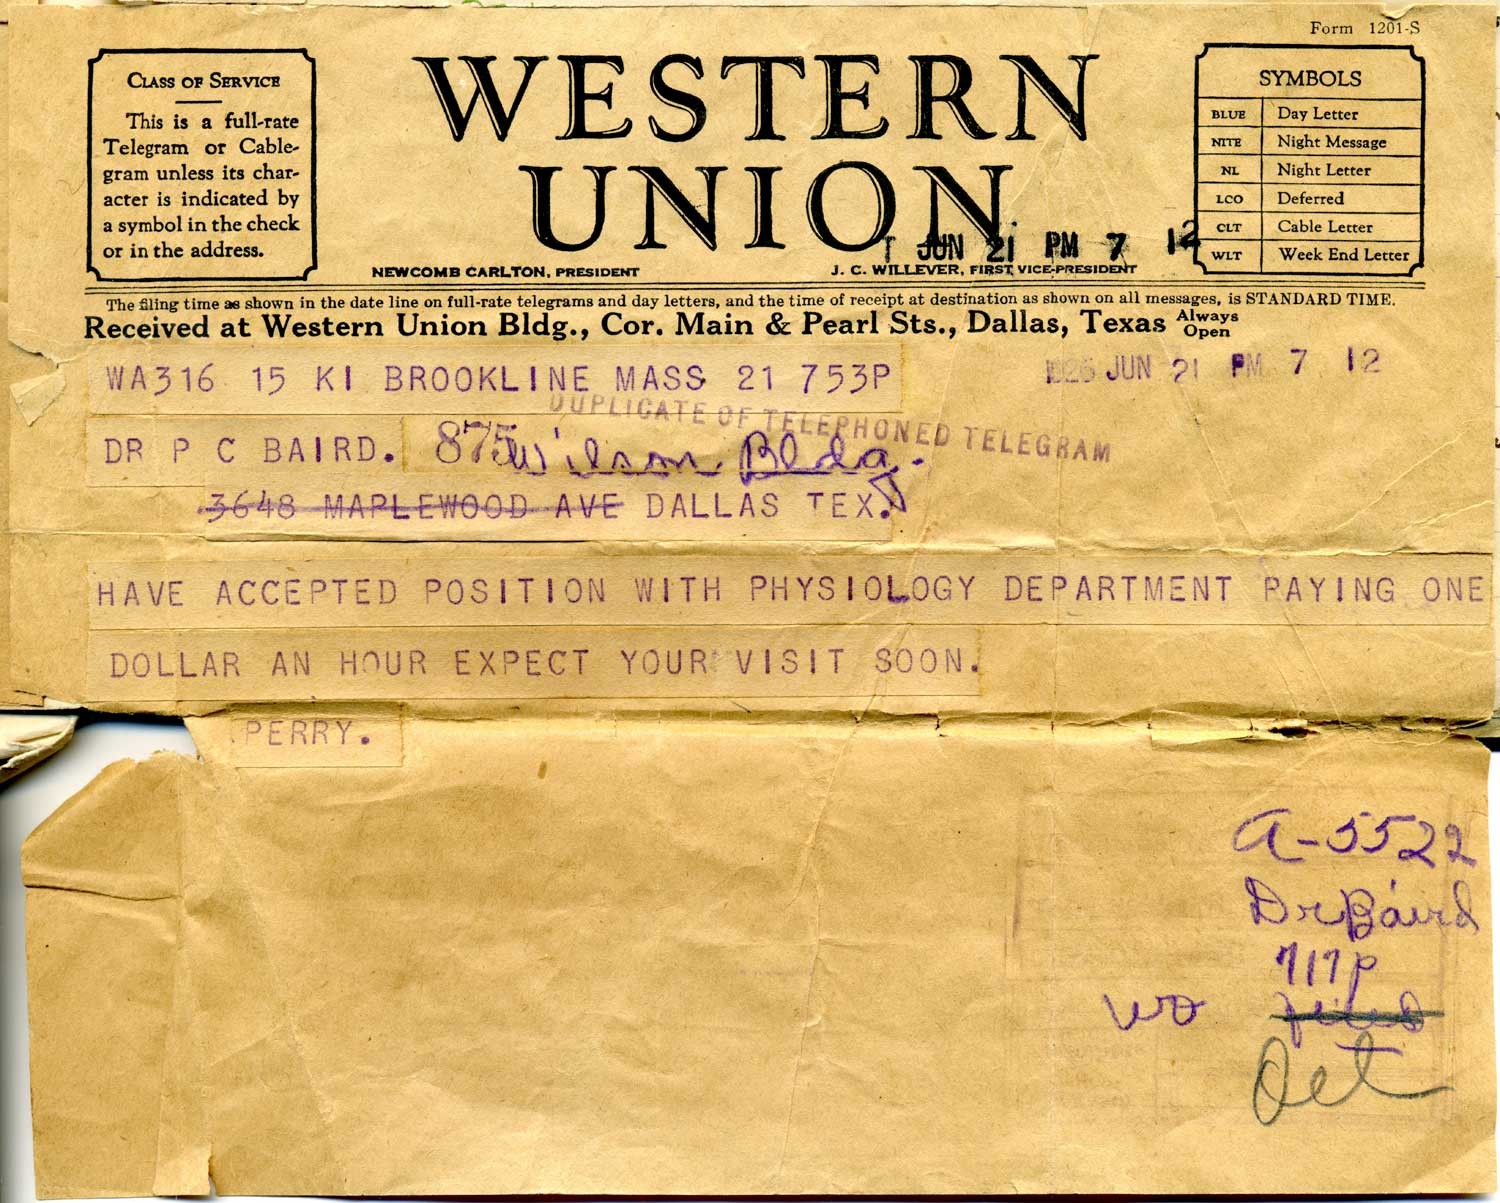 Form 1201-S
CLASS OF SERVICE
This is a full-rate
Telegram or Cable-
gram unless its char-
acter is indicated by
a symbol in the check
or in the address.
WESTERN
UNION
NEWCOMB CARLTON, PRESIDENT
J. C. WILLEVER, FIRST VICE-PRESIDENT
JUN 21 PM 7 12
SYMBOLS
BLUE Day Letter
NITE Night Message
NL Night Letter
LCO Deferred
CLT Cable Letter
WLT Week End Letter
The filing time as shown in the date line on full-rate telegrams and day letters, and the time of receipt at destination as shown on all messages, is STANDARD TIME.
Received at Western Union Bldg., Cor. Main & Pearl Sts., Dallas, Texas Always Open
WA316 15 KI BROOKLINE MASS 21 753P
JUN 21 PM 7 12
DUPLICATE OF TELEPHONED TELEGRAM
DR P C BAIRD. 875 Wilson Bldg.
3648 MAPLEWOOD AVE DALLAS TEX.
HAVE ACCEPTED POSITION WITH PHYSIOLOGY DEPARTMENT PAYING ONE
DOLLAR AN HOUR EXPECT YOUR VISIT SOON.
PERRY.
A-5522
Dr Baird
717p